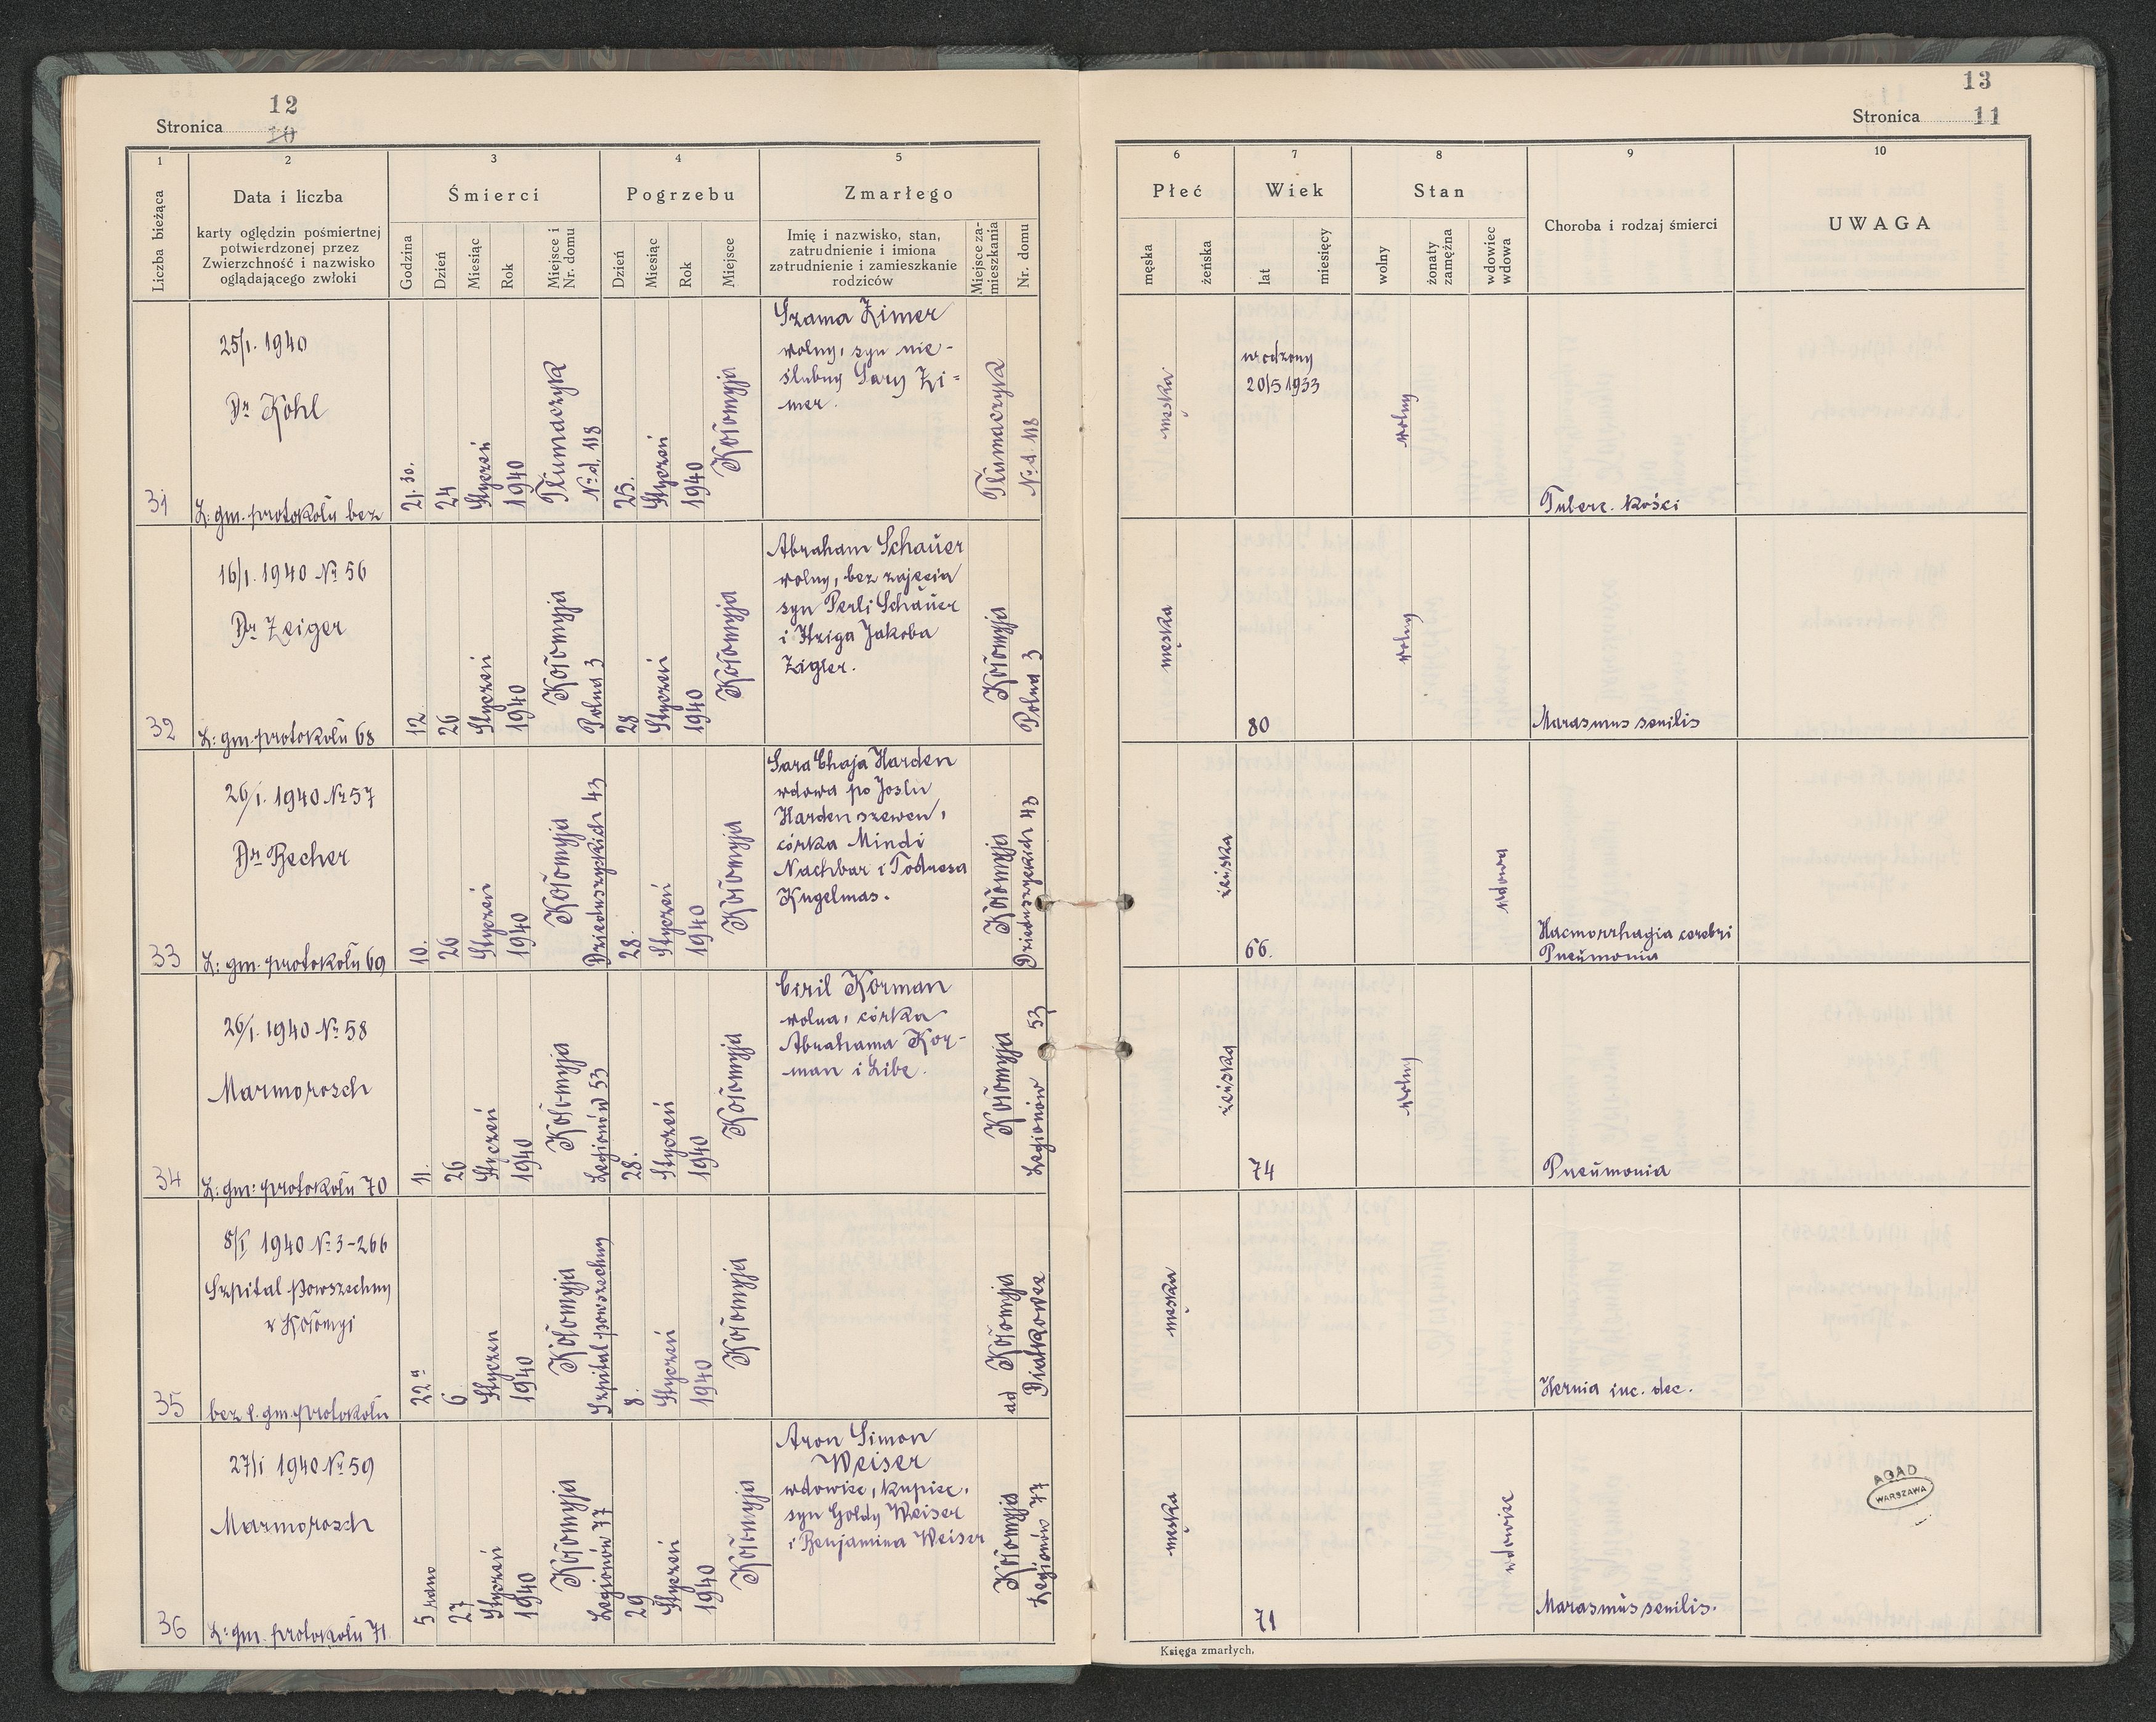 12
Stronica 10
1
2
3
4
5
Liczba bieżąca
Data i liczba
karty oględzin pośmiertnej
potwierdzonej przez
Zwierzchność i nazwisko
oglądającego zwłoki
Śmierci
Godzina
Dzień
Miesiąc
Rok
Miejsce i
Nr. domu
Pogrzebu
Dzień
Miesiąc
Rok
Miejsce
Zmarłego
Imię i nazwisko, stan,
zatrudnienie i imiona
zatrudnienie i zamieszkanie
rodziców
Miejsce za-
mieszkania
Nr. domu
31
25/I. 1940
Dr Kohl
L: gm. protokołu bez
21.30.
24
Styczeń
1940
Tłumaczyk
No d. 118
25.
Styczeń
1940
Kołomyja
Szama Zimer
wolny, syn nie-
ślubny Sary Zi=
mer.
Tłumaczyk
No d. 118
32
16/I. 1940 No 56
Dr Zeiger
L: gm. protokołu 68
12.
26
Styczeń
1940
Kołomyja
Polna 3
28
Styczeń
1940
Kołomyja
Abraham Schauer
wolny, bez zajęcia
syn Perli Schauer
i Hziga Jakoba
Zigler.
Kołomyja
Polna 3
33
26/I. 1940 No 57
Dr Becher
L: gm. protokołu 69
10.
26
Styczeń
1940
Kołomyja
Dzieduszyckich 43
28.
Styczeń
1940
Kołomyja
Sara Chaja Harden
wdowa po Joslu
Harden szewcu,
córka Mindi
Nachbar i Todresa
Kugelmas.
Kołomyja
Dzieduszyckich 43
34
26/I. 1940 No 58
Marmorosch
L: gm: protokołu 70
11.
26
Styczeń
1940
Kołomyja
Legionów 53
28.
Styczeń
1940
Kołomyja
Ciril Korman
wolna, córka
Abrahama Kor-
man i Libe.
Kołomyja
Legionów 53
35
8/I 1940 No 3-266
Szpital Powszechny
w Kołomyi
bez l. gm. protokołu
22
6
Styczeń
1940
Kołomyja
Szpital powszechny
8.
Styczeń
1940
Kołomyja
ad Kołomyja
Diatkowce
36
27/I 1940 No 59
Marmorosch
L: gm. protokołu 71.
5 rano
27
Styczeń
1940
Kołomyja
Legionów 77
29
Styczeń
1940
Kołomyja
Aron Simon
Weiser
wdowiec, kupiec,
syn Goldy Weiser
i Benjamina Weiser
Kołomyja
Legionów 77
13
Stronica 11
6
7
8
9
10
Płeć
męska
żeńska
Wiek
lat
miesięcy
Stan
wolny
żonaty
zamężna
wdowiec
wdowa
Choroba i rodzaj śmierci
UWAGA
męska
urodzony
20/5 1933
wolny
Tuberc. kości
męska
80
wolny
Marasmus senilis
żeńska
66.
wdowa
Haemorrhagia cerebri
Pneumonia
żeńska
74
wolny
Pneumonia
męska
Hernia inc. dec.
męska
71
wdowiec
Marasmus senilis.
AGAD
WARSZAWA
Księga zmarłych.